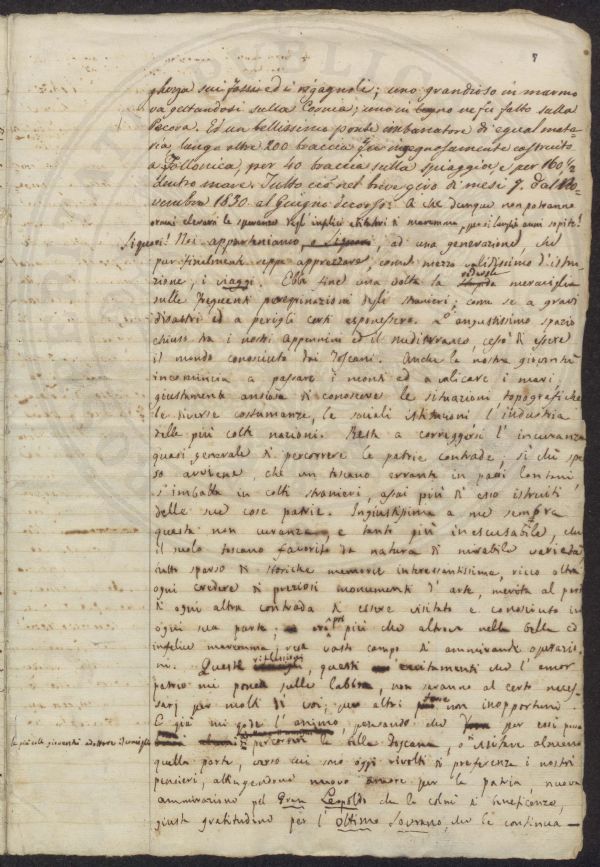 7
ghezza sui fossi ed i rigagnoli; uno grandioso in marmo
va gettandosi sulla Cornia; uno in legno ne fu fatto sulla
Pecora. Ed un bellissimo ponte imbarcatore di egual mate-
ria, lungo oltre 200 braccia fu ingegnosamente costruito
a Follonica, per 40 braccia sulla spiaggia e per 160 1/2
dentro mare. Tutto ciò nel breve giro di mesi 7. dal No-
vembre 1830 al Giugno decorso. A che dunque non potranno
ormai elevarsi le speranze degl'infelici abitatori di maremma, per sì lunghi anni sopite!
Signori! Noi apparteniamo, e Signori, ad una generazione, che
pur finalmente seppe apprezzare, come mezzo validissimo d'istru-
zione, i viaggi. Ebbe fine una volta la stupida meraviglia
sulle frequenti peregrinazioni degli stranieri; come se a gravi
disastri ed a perigli certi esponessero. L'angustissimo spazio
chiuso tra i nostri Appennini ed il Mediterraneo, cessò di essere
il mondo conosciuto dai Toscani. Anche la nostra gioventù
incomincia a passare i monti ed a valicare i mari,
giustamente ansiosa di conoscere le situazioni topografiche
le diverse costumanze, le sociali istituzioni l'industria
delle più colte nazioni. Resta a correggersi l'incuranza
quasi generale di percorrere le patrie contrade; sì che spes-
so avviene, che un toscano errante in paesi lontani
s'imbatta in colti stranieri, assai più di esso istruiti
delle sue cose patrie. Ingiustissima a me sempre
questa non curanza, e tanto più inescusabile, che
il suolo toscano favorito da natura di mirabile varietà,
tutto sparso di storiche memorie interessantissime, ricco oltre
ogni credere di preziosi monumenti d'arte, merita al pari
di ogni altra contrada di essere visitato e conosciuto in
ogni sua parte; ora poi più che altrove nella bella ed
infelice maremma vasto campo di ammirande operazio-
ni. Queste riflessioni, questi eccitamenti che l'amor
patrio mi pone sulle labbra, non saranno al certo neces-
sarj per molti di voi; per altri non inopportuni.
E già mi gode l'animo, pensando che per essi
la più colta gioventù adotterà il consiglio
percorrere la bella Toscana, o visitare almeno
quella parte, verso cui sono oggi rivolti di preferenza i nostri
pensieri, attingendone nuovo amore per la patria, nuova
ammirazione pel Gran Leopoldo che la colmò di beneficenze,
giusta gratitudine per l'ottimo Sovrano, che le continua